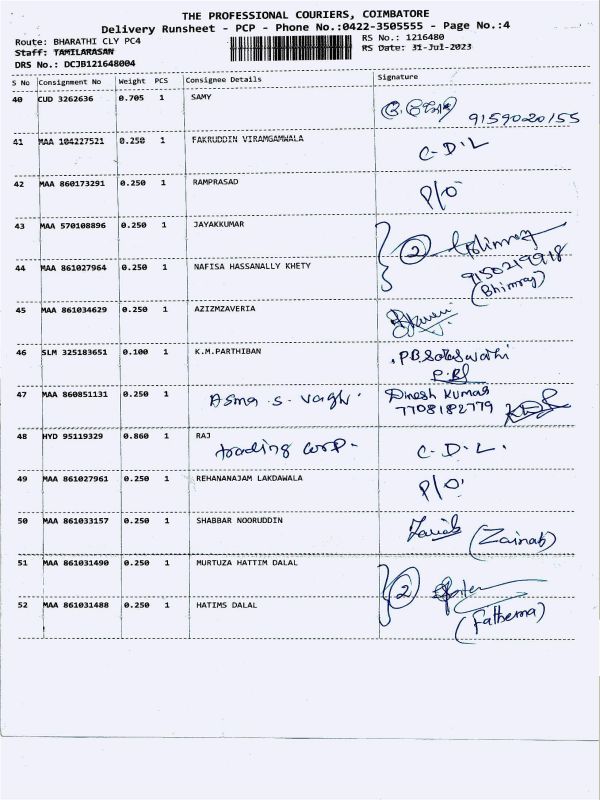 THE PROFESSIONAL COURIERS, COIMBATORE
Delivery Runsheet - PCP - Phone No.:0422-3505555 - Page No.:4
Route: BHARATHI CLY PC4 RS No.: 1216480
Staff: TAMILARASAN RS Date: 31-Jul-2023
DRS No.: DCJB121648004
S No Consignment No Weight PCS Consignee Details Signature
40 CUD 3262636 0.705 1 SAMY 9159020155
41 MAA 104227521 0.250 1 FAKRUDDIN VIRAMGAMWALA C-D-L
42 MAA 860173291 0.250 1 RAMPRASAD P/O
43 MAA 570108896 0.250 1 JAYAKKUMAR 2
44 MAA 861027964 0.250 1 NAFISA HASSANALLY KHETY 9150219918
(Bhimraj)
45 MAA 861034629 0.250 1 AZIZMZAVERIA
46 SLM 325183651 0.100 1 K.M.PARTHIBAN
47 MAA 860851131 0.250 1 Asma . S. Vagh . Dinesh Kumar
7708182779
48 HYD 95119329 0.860 1 RAJ
trading corp- C-D-L.
49 MAA 861027961 0.250 1 REHANANAJAM LAKDAWALA P/O
50 MAA 861033157 0.250 1 SHABBAR NOORUDDIN (Zainab)
51 MAA 861031490 0.250 1 MURTUZA HATTIM DALAL 2
52 MAA 861031488 0.250 1 HATIMS DALAL (Fathema)